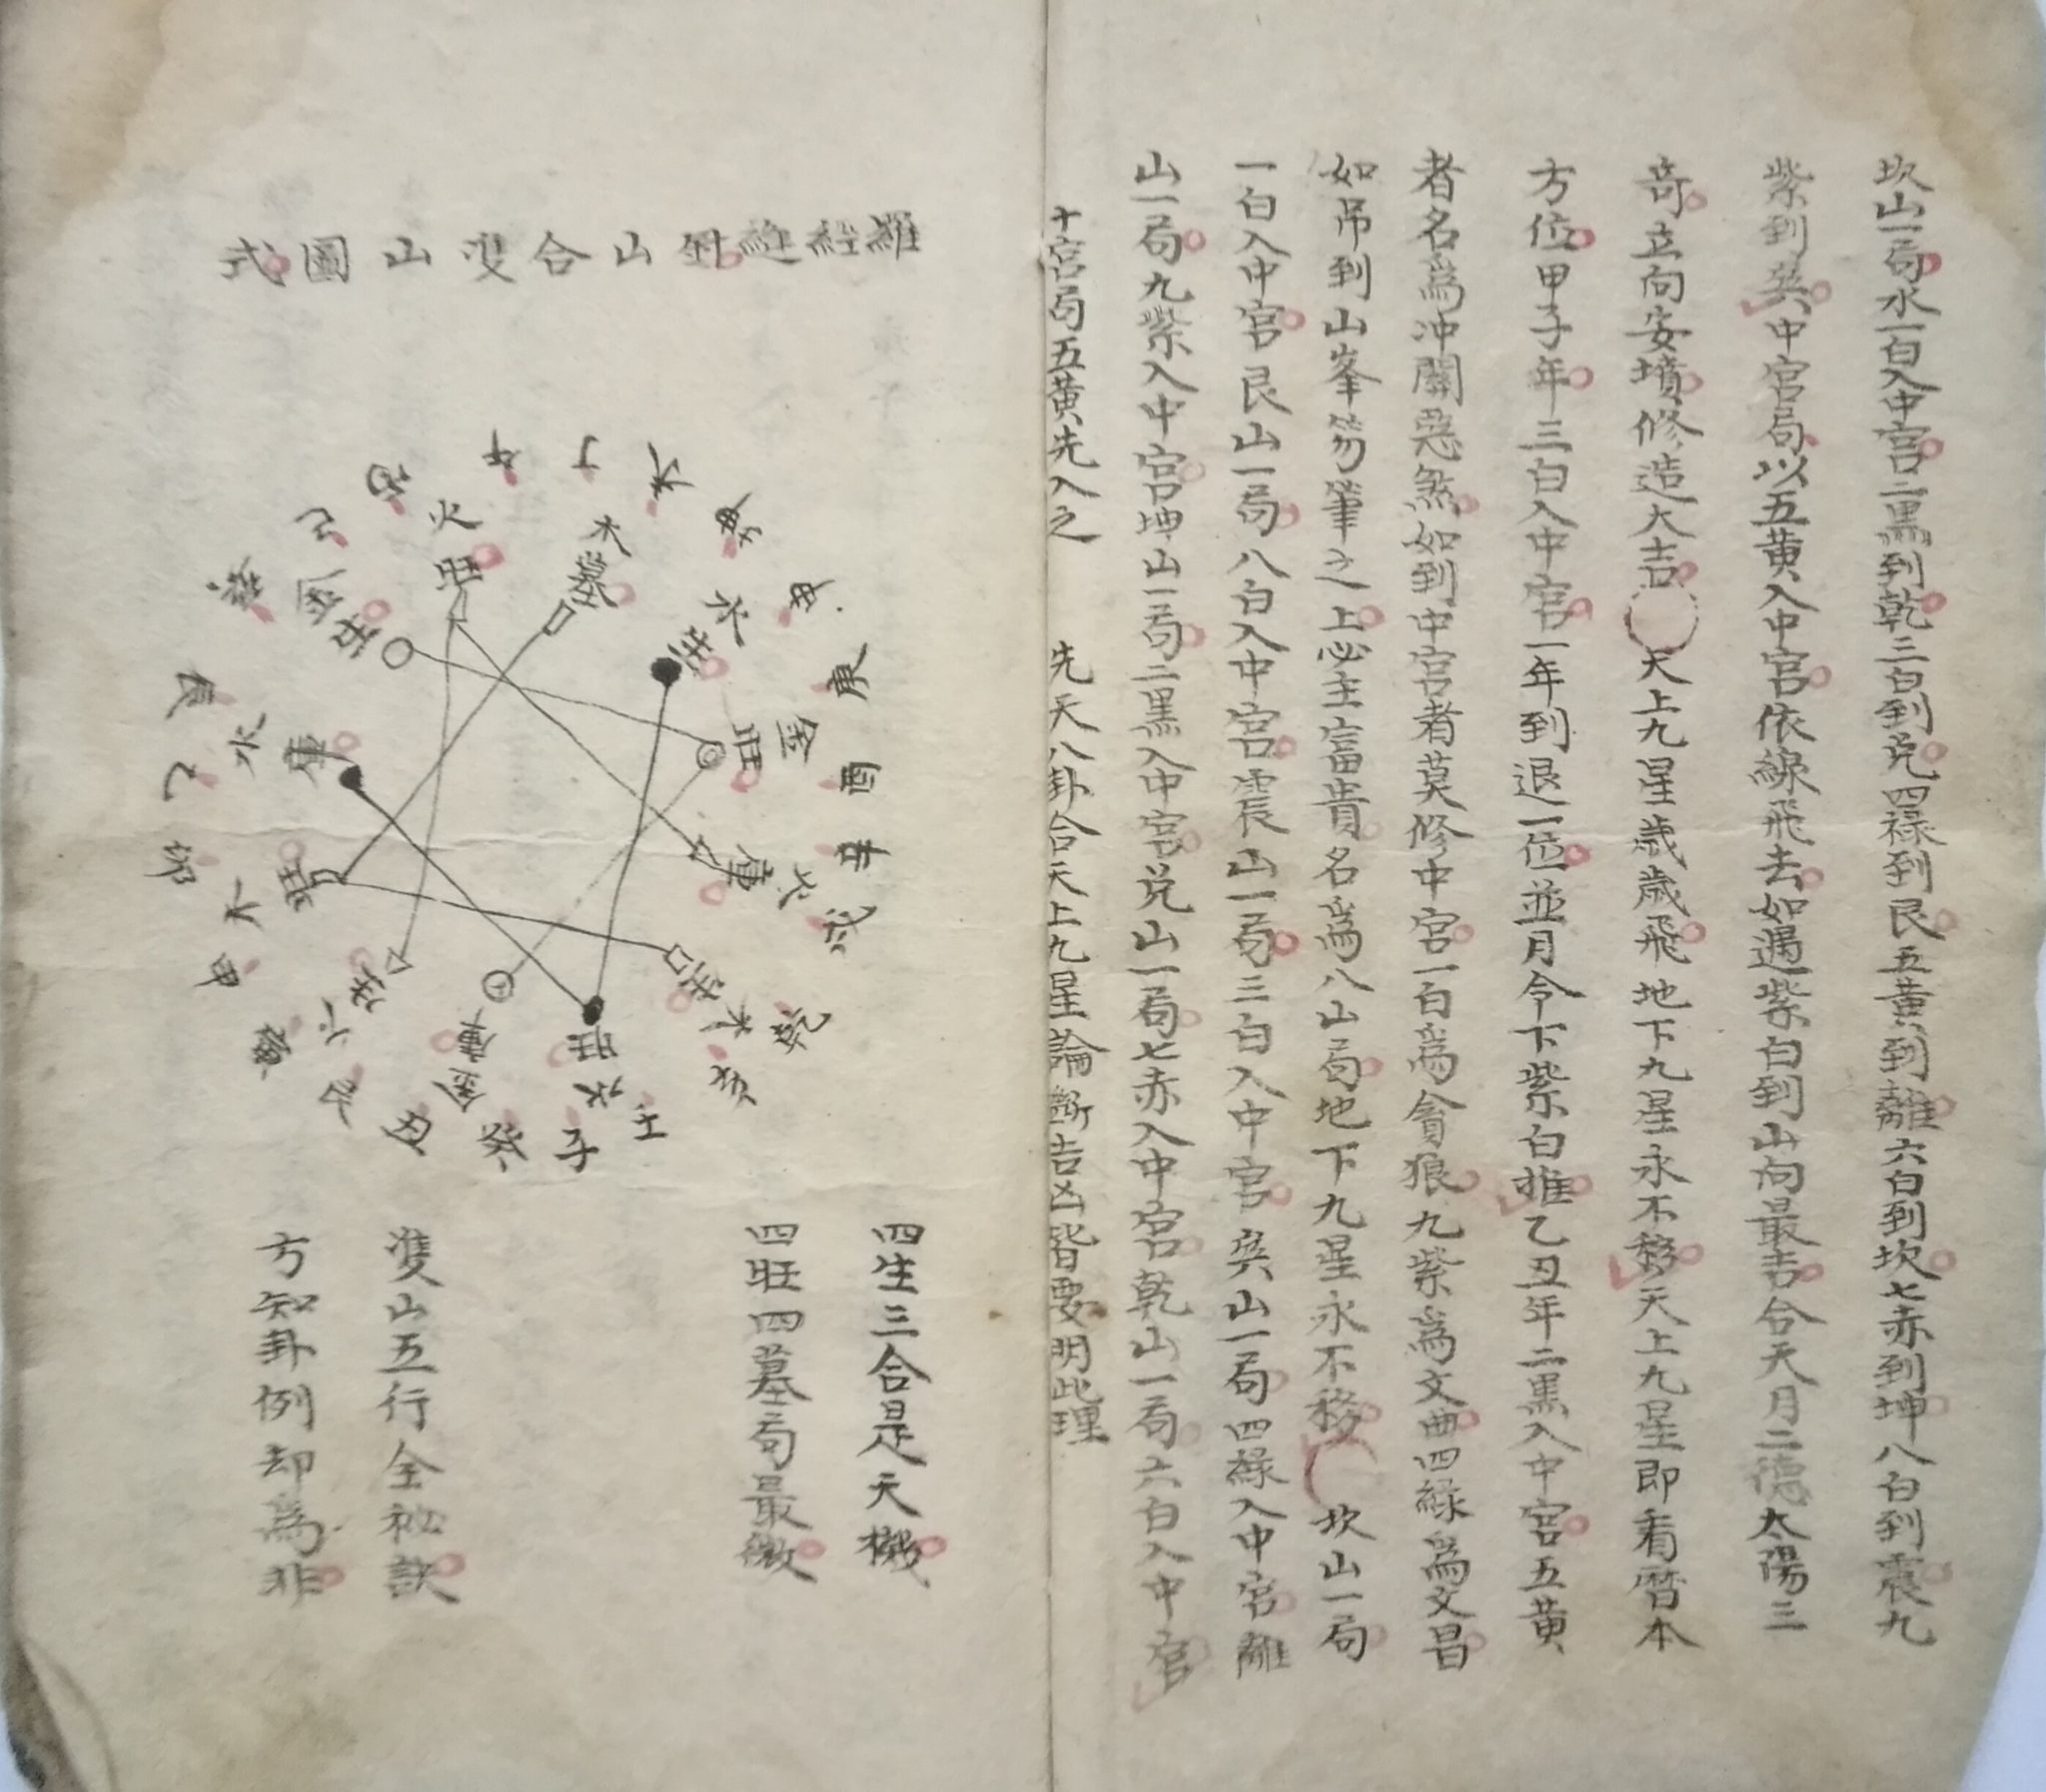 坎山一局水一白入中宮二黒到乾三白到兌四祿到艮五黃到離六白到坎七赤到坤八白到震九
紫到巽中宮局以五黃入中宮依綠飛去如遇紫白到山向最吉合天月二德太陽三
奇立向安墳修造大吉〇天上九星歲歲飛地下九星永不移天上九星即看曆本
方位甲子年三白入中宮一年到退一位並月令下紫白推乙丑年二黒入中宮五黃
者名為冲關惡煞如到中宮者莫修中宮一白為貪狼九紫為文曲四綠為文昌
如吊到山峯笏筆之上必主富貴名為八山局地下九星永不移〇坎山一局
一白入中宮艮山一局八白入中宮震山一局三白入中宮巽山一局四綠入中宮離
山一局九紫入中宮坤山一局二黒入中宮兌山一局七赤入中宮乾山一局六白入中宮
十宮局五黃先入之 先天八卦合天上九星論斷吉凶皆要明此理
羅經縫針山合双山圖式
巳 丙 午 丁 未 坤 申 庚 酉 辛 戌 乾 亥 壬 子 癸 丑 艮 寅 甲 卯 乙 辰 巽
火旺
木墓
水生
金旺
火庫
木生
水旺
金庫
火生
木旺
水庫
金生
四生三合是天機
四旺四墓局最微
雙山五行全秘訣
方知卦例却為非